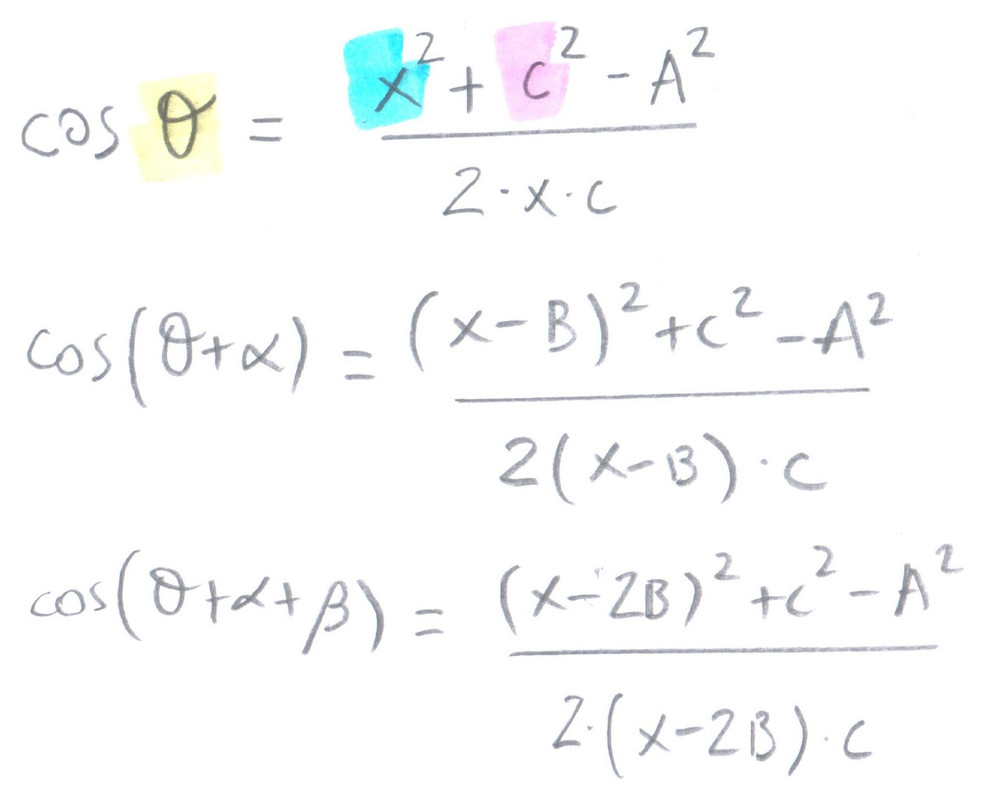 cos θ = x² + c² - A² / 2·x·c
cos(θ+α) = (x-B)² + c² - A² / 2(x-B)·c
cos(θ+α+β) = (x-2B)² + c² - A² / 2·(x-2B)·c